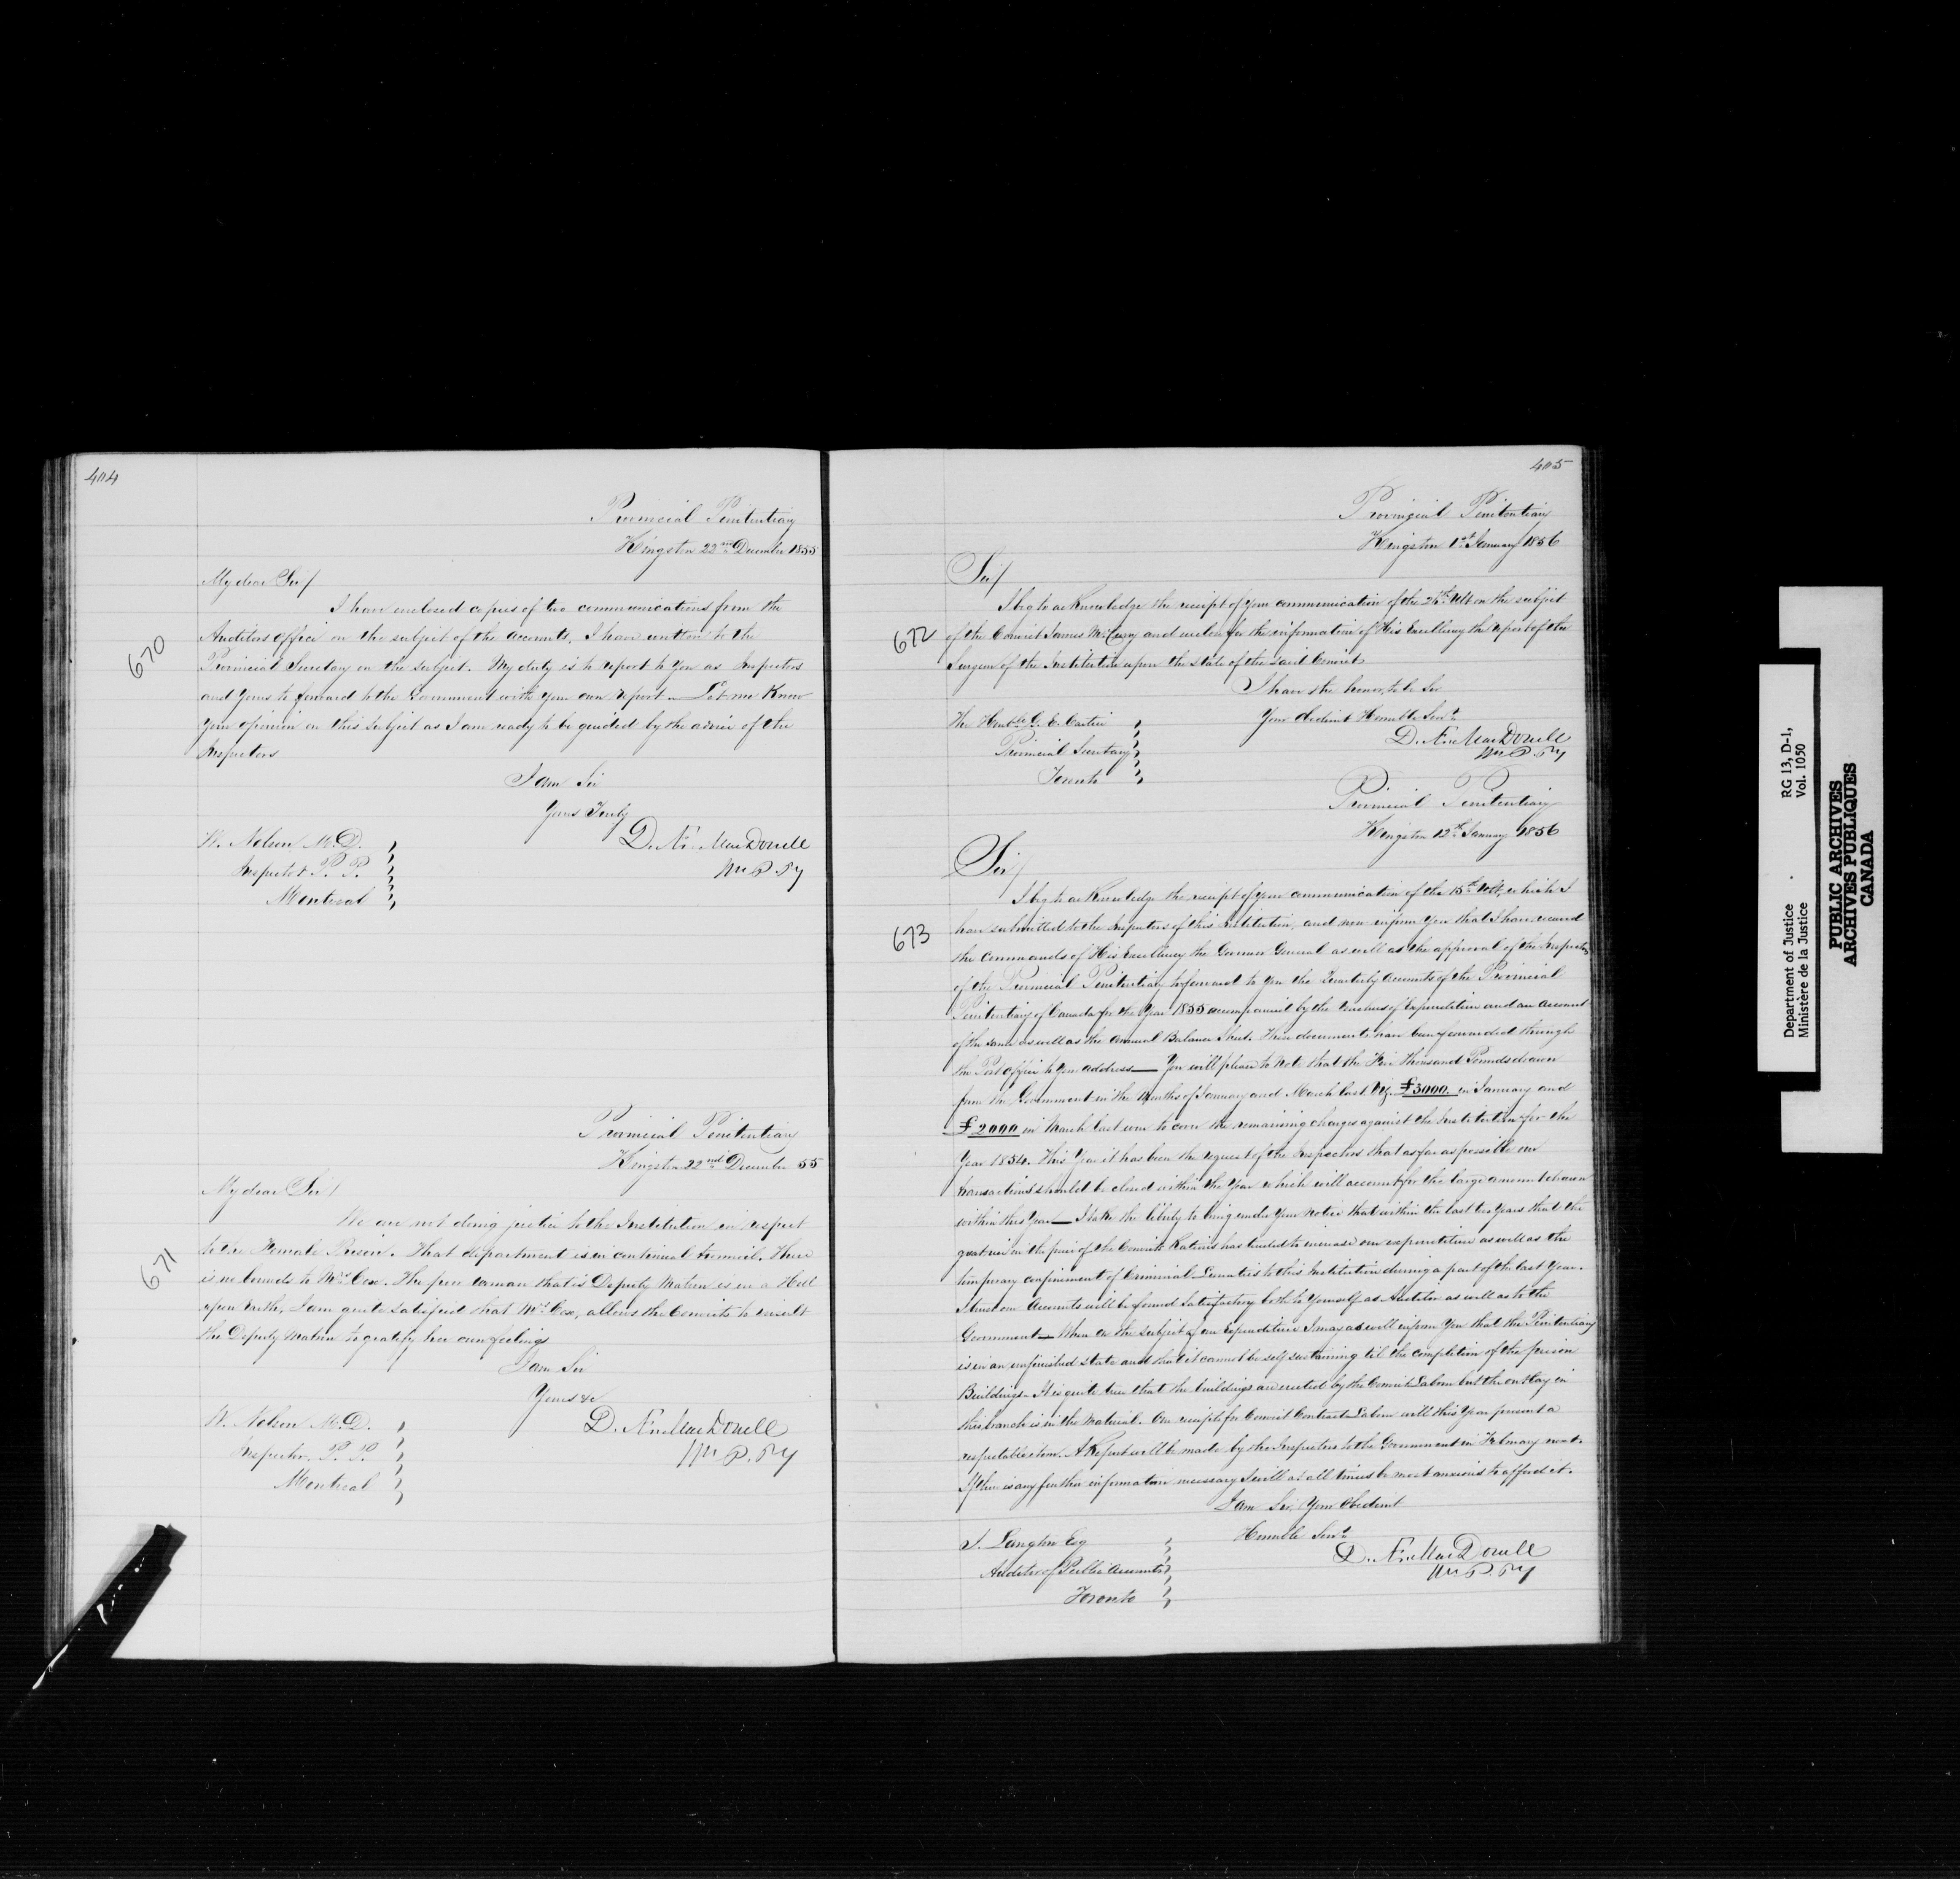 404
Provincial Penitentiary
Kingston 22nd December 1855
My dear Sir/
I have enclosed copies of two communications from the
Auditors Office on the subject of the accounts, I have written to the
670
Provincial Secretary on the subject. My duty is to report to you as Inspectors
and yours to forward to the Government with your own report – Let me Know
your opinion on this subject as I am ready to be guided by the advice of the
Inspectors
I am Sir
Yours Truly
D. Æ. MacDonell
W. P. Py
W. Nelson M.D.
Inspector P. P.
Montreal
Provincial Penitentiary
Kingston 22nd December 55
My dear Sir/
We are not doing justice to the Institution in respect
to the Female Prison. That department is in continual turmoil. There
671
is no bounds to Mrs Cox. The poor woman that is Deputy Matron is in a Hell
upon Earth, I am quite satisfied that Mrs Cox, allows the Convicts to insult
the Deputy Matron to gratify her own feelings
I am Sir
Yours &c
D. Æ. MacDonell
W. P. Py
W. Nelson M.D.
Inspector. P. P.
Montreal
405
Provincial Penitentiary
Kingston 1st January 1856
Sir/
I beg to acKnowledge the receipt of your communication of the Ult. on the subject
672
of the Convict James and enclose for the information of His Excellency the report of the
Surgeon of the Institution upon the state of the said Convict
I have the honor, to be Sir
Your obedient Humble Servt
D. Æ. MacDonell
W. P. Py
The Honble G. E. Cartier
Provincial Secretary
Toronto
Provincial Penitentiary
Kingston 12th January 1856
Sir/
I beg to acKnowledge the receipt of your communication of the 15th Ult, which I
673
have submitted to the Inspectors of this institution, and now inform you that I have received
the commands of His Excellency the Governor General as well as the approval of the Inspectors
of the Provincial Penitentiary to forward to you the Quarterly Accounts of the Provincial
Penitentiary of Canada for the Year 1855 accompanied by the vouchers of Expenditure and an account
of the same as well as the Annual Balance Sheet. These documents have been forwarded through
the Post Office to your address — You will please to Note that the Five thousand Pounds drawn
from the Government in the Months of January and March last Viz. £3000. in January and
£2000 in March last were to cover the remaining charges against the Institution for the
Year 1854. This Year it has been the request of the Inspectors that as far as possible our
transactions should be closed within the Year which will account for the large amount drawn
within this Year — I take the liberty to bring under your notice that within the last two Years that the
great rise in the price of the Convicts Rations has tended to increase our expenditure as well as the
temporary confinement of Criminal Lunatics to this Institution during a part of the last Year.
I trust our Accounts will be found satisfactory both to Yourself as Auditor as well as to the
Government — When on the subject of our Expenditure I may as well inform You that the Penitentiary
is in an unfinished state and that it cannot be self sustaining til the completion of the prison
Buildings – It is quite true that the buildings are erected by the Convict Labour but the outlay in
this branch is in the Material. Our receipts for Convict Contract Labour will this Year present a
respectable item. A Report will be made by the Inspectors to the Government in February next.
If there is any further information necessary I will at all times be most anxious to afford it.
I am Sir, Your obedient
Humble Servt
D. Æ. MacDonell
W. P. Py
J. Langton Esq
Auditor of Public Accounts
Toronto
Department of Justice
Ministère de la Justice
RG 13, D-1,
Vol. 1050
PUBLIC ARCHIVES
ARCHIVES PUBLIQUES
CANADA